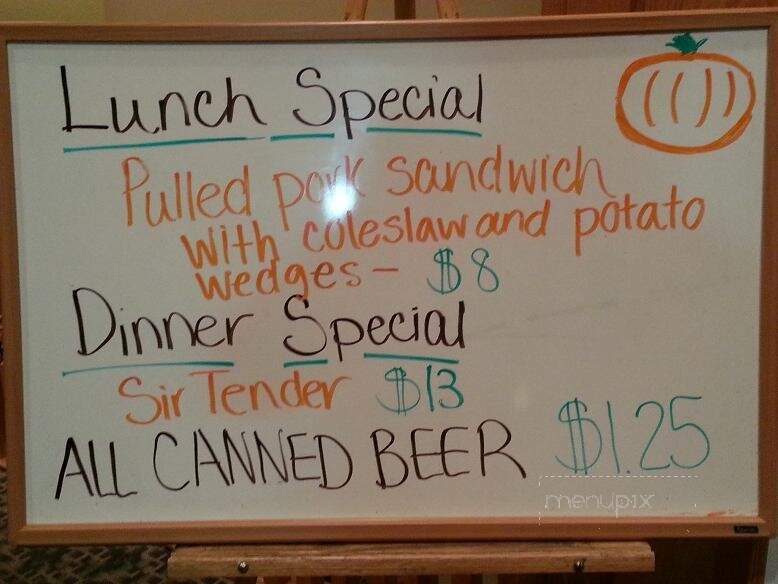 Lunch Special
Pulled pork sandwich
with coleslaw and potato
wedges - $8
Dinner Special
Sir Tender $13
ALL CANNED BEER $1.25
menupix